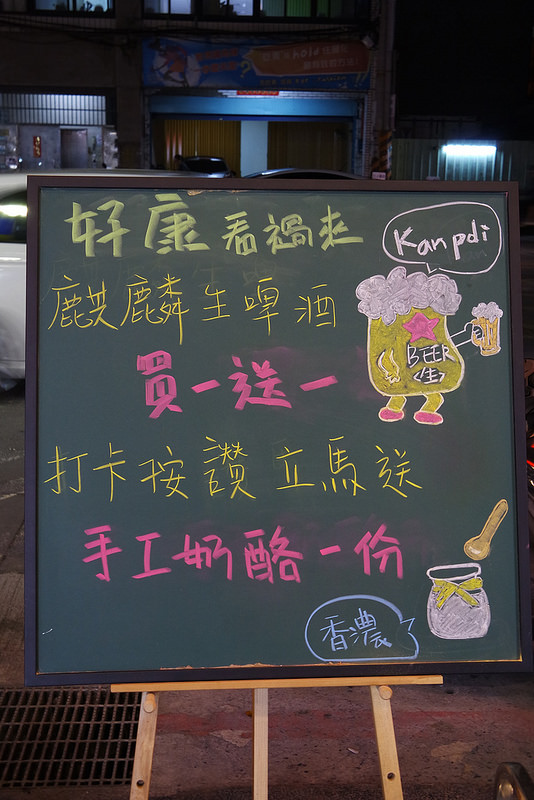 好康看過來
Kanpdi
麒麟生啤酒
BEER
<生>
買一送一
打卡按讚立馬送
手工奶酪一份
香濃